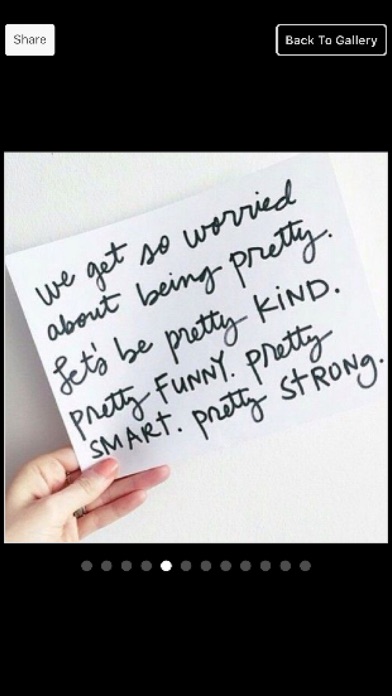 Share
Back To Gallery
we get so worried
about being pretty.
Let's be pretty KIND.
pretty FUNNY. pretty
SMART. pretty STRONG.